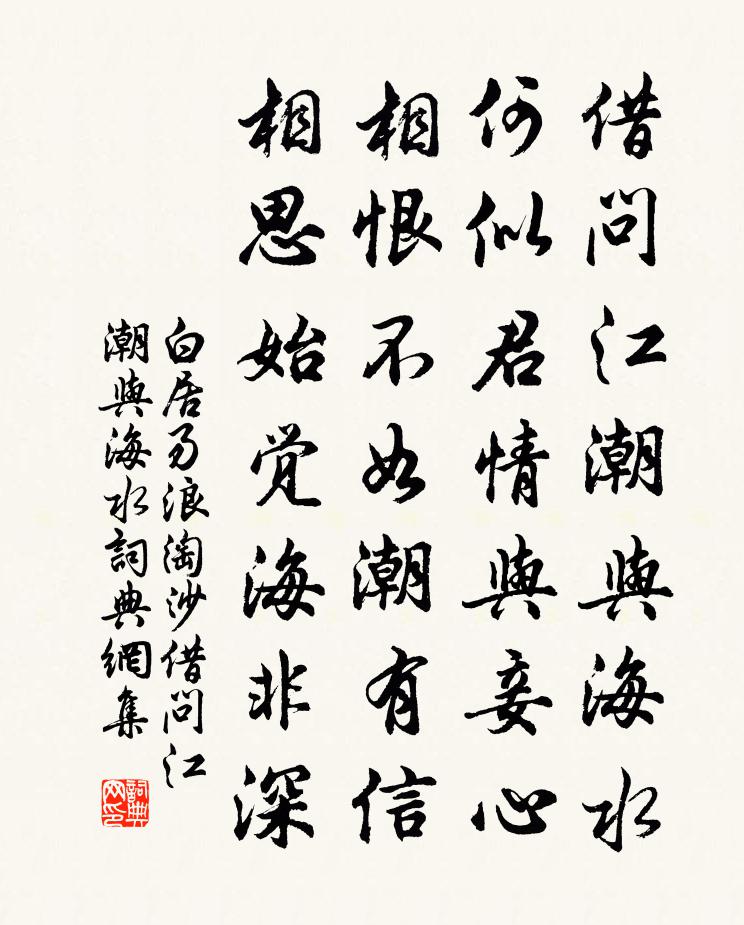 借问江潮與海水
何似君情與妾心
相恨不如潮有信
相思始覚海非深
白居易浪淘沙借问江
潮與海水詞典網集
詞典
网印